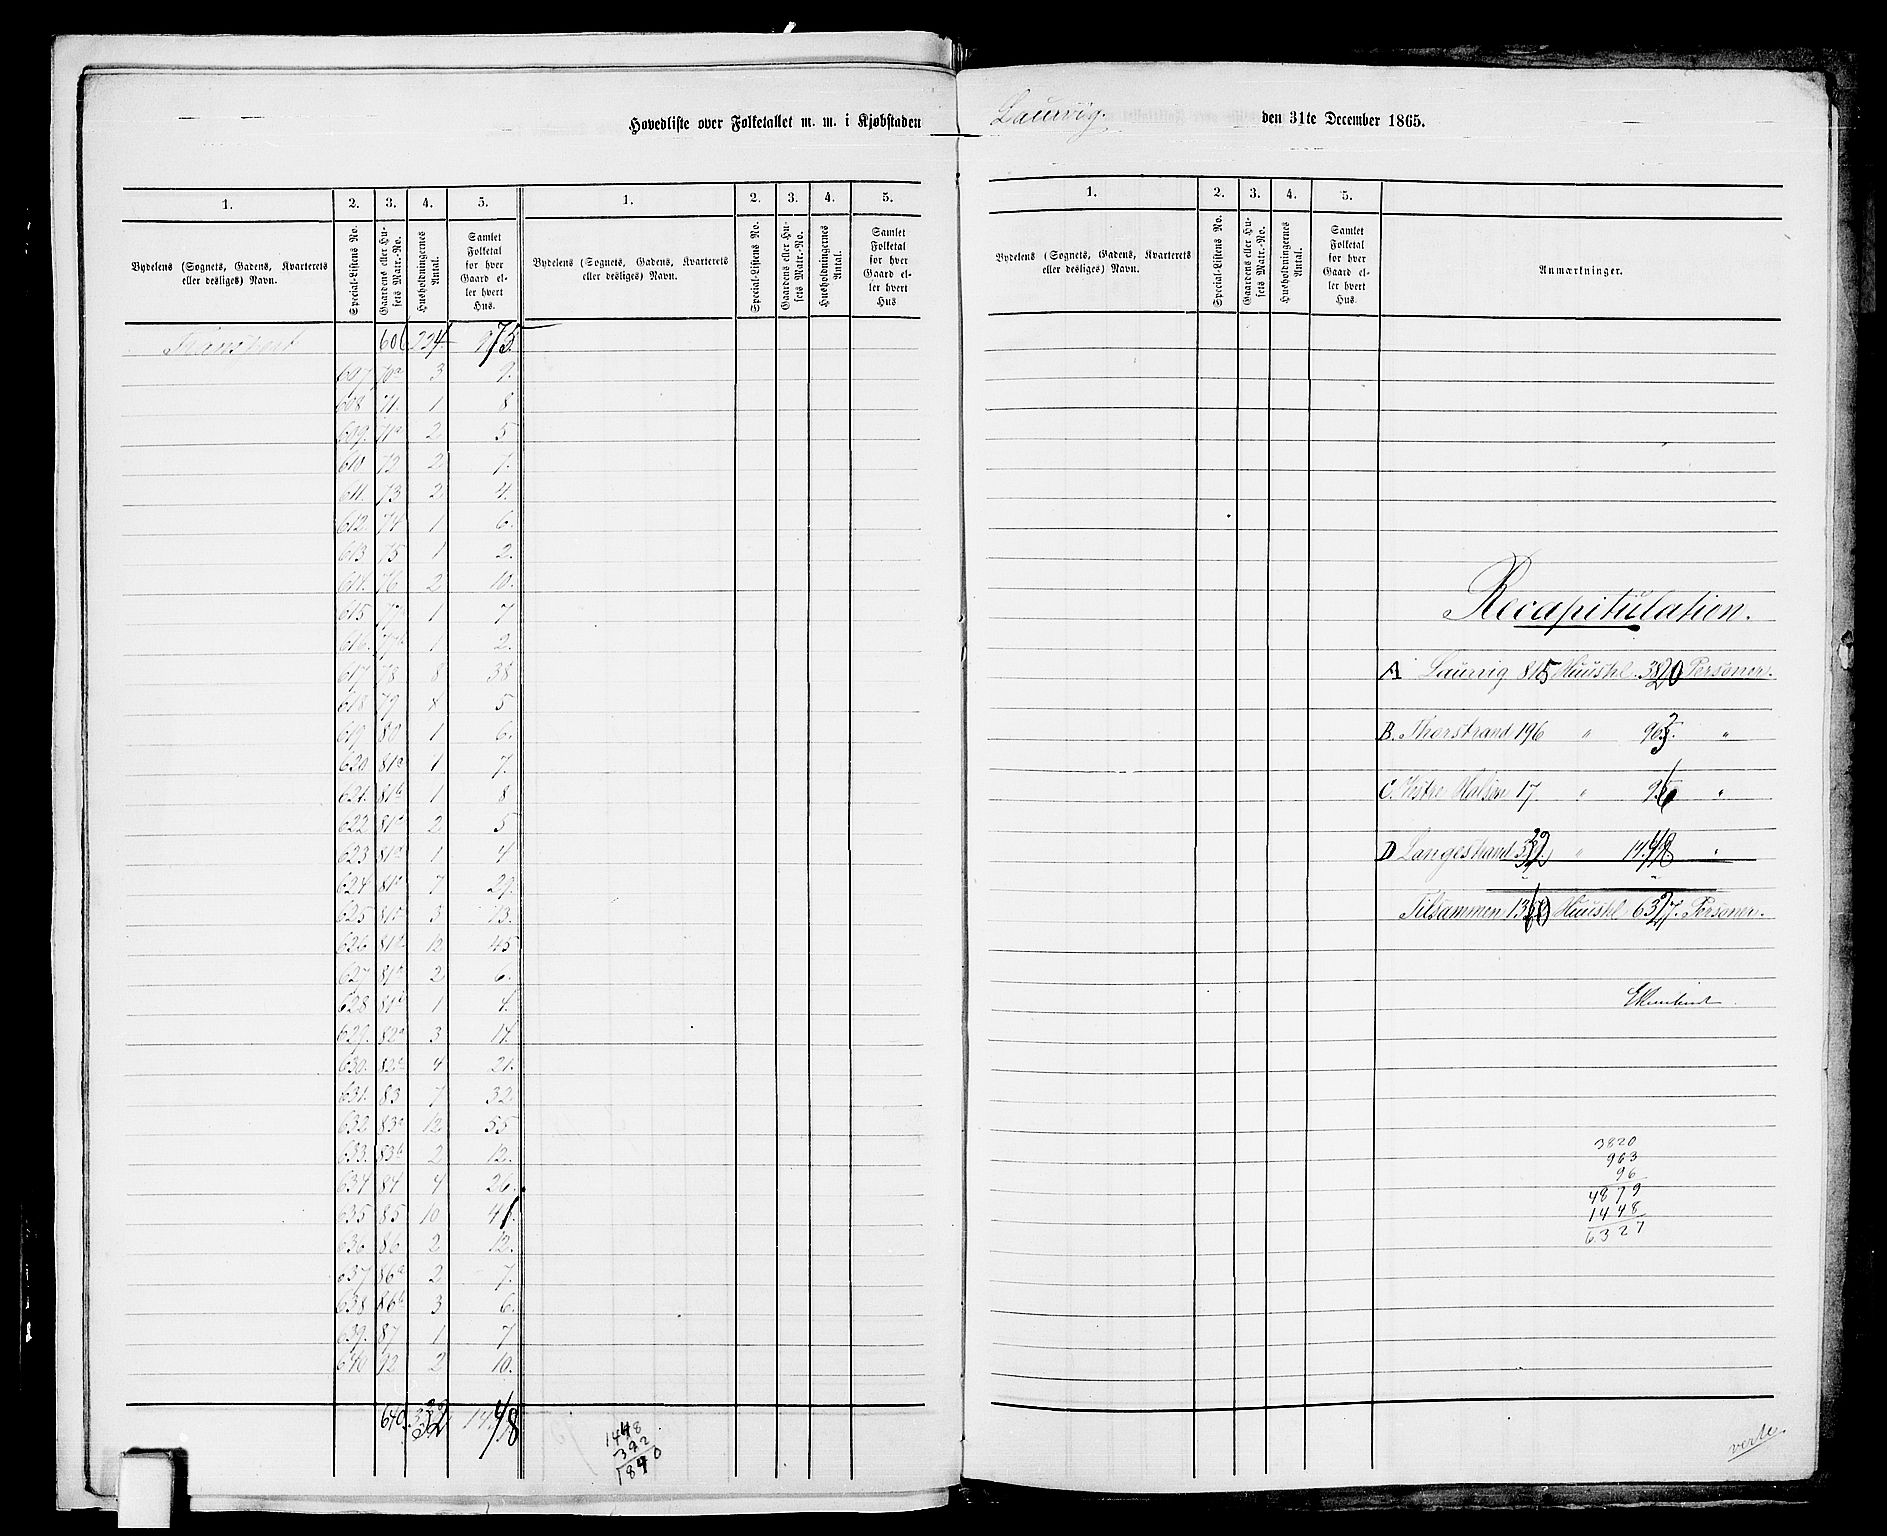 Hovedliste over Folketallet m. m. i Kjøbstaden Laurvig. den 31te December 1865.
1. 2. 3. 4. 5. 1. 2. 3. 4. 5.
Bydelens (Sognets, Gadens, Kvarterets eller desliges) Navn. Special-Listens No. Gaardens eller Husets Matr.-No. Husholdningernes Antal. Samlet Folketal for hver Gaard eller hvert Hus. Bydelens (Sognets, Gadens, Kvarterets eller desliges) Navn. Special-Listens No. Gaardens eller Husets Matr.-No. Husholdningernes Antal. Samlet Folketal for hver Gaard eller hvert Hus
Transport 606 224 975
607 70a 3 9.
608 71. 1 8
609. 71a 2 5
610 72 2 7.
611. 73 2 4.
612. 74 1 6.
613. 75 1 2.
614. 76 2 10.
615 77a 1 7
616. 77b 1 2.
617 78 8 38
618 79 5
619 80 1 6.
620 81a 1 7.
621. 81b 1 8
622 2 5
623 1 4
624 7 29.
625 3 13.
626 12 45
627. 2 6.
628 1 4.
629. 82a 3 14.
630. 4 21.
631. 83 7 32
632 83a 12 55
633. 83b 2 12.
634 84 4 26.
635 85 10 41.
636 86 2 12.
637 86a 2 7.
638 86b 3 6.
639. 87 1 7
640 92 2 10.
640. 332 1448
1448
392
1840
1. 2. 3. 4. 5.
Bydelens (Sognets, Gadens, Kvarterets eller desliges) Navn. Special-Listens No. Gaardens eller Husets Matr.-No. Husholdningernes Antal. Samlet Folketal for hver Gaard eller hvert Hus. Anmærkninger.
Recapitulation.
A Laurvig 815 Huushl. 3820 Personer.
B. Thorstrand 196 " 963. "
C. Østre Halsen 17 " 96 "
D Langestrand 332 " 1448. "
Tilsammen 1360 Huushl 6327. Personer.
3820
963
96
4879
1448
6327
verte.